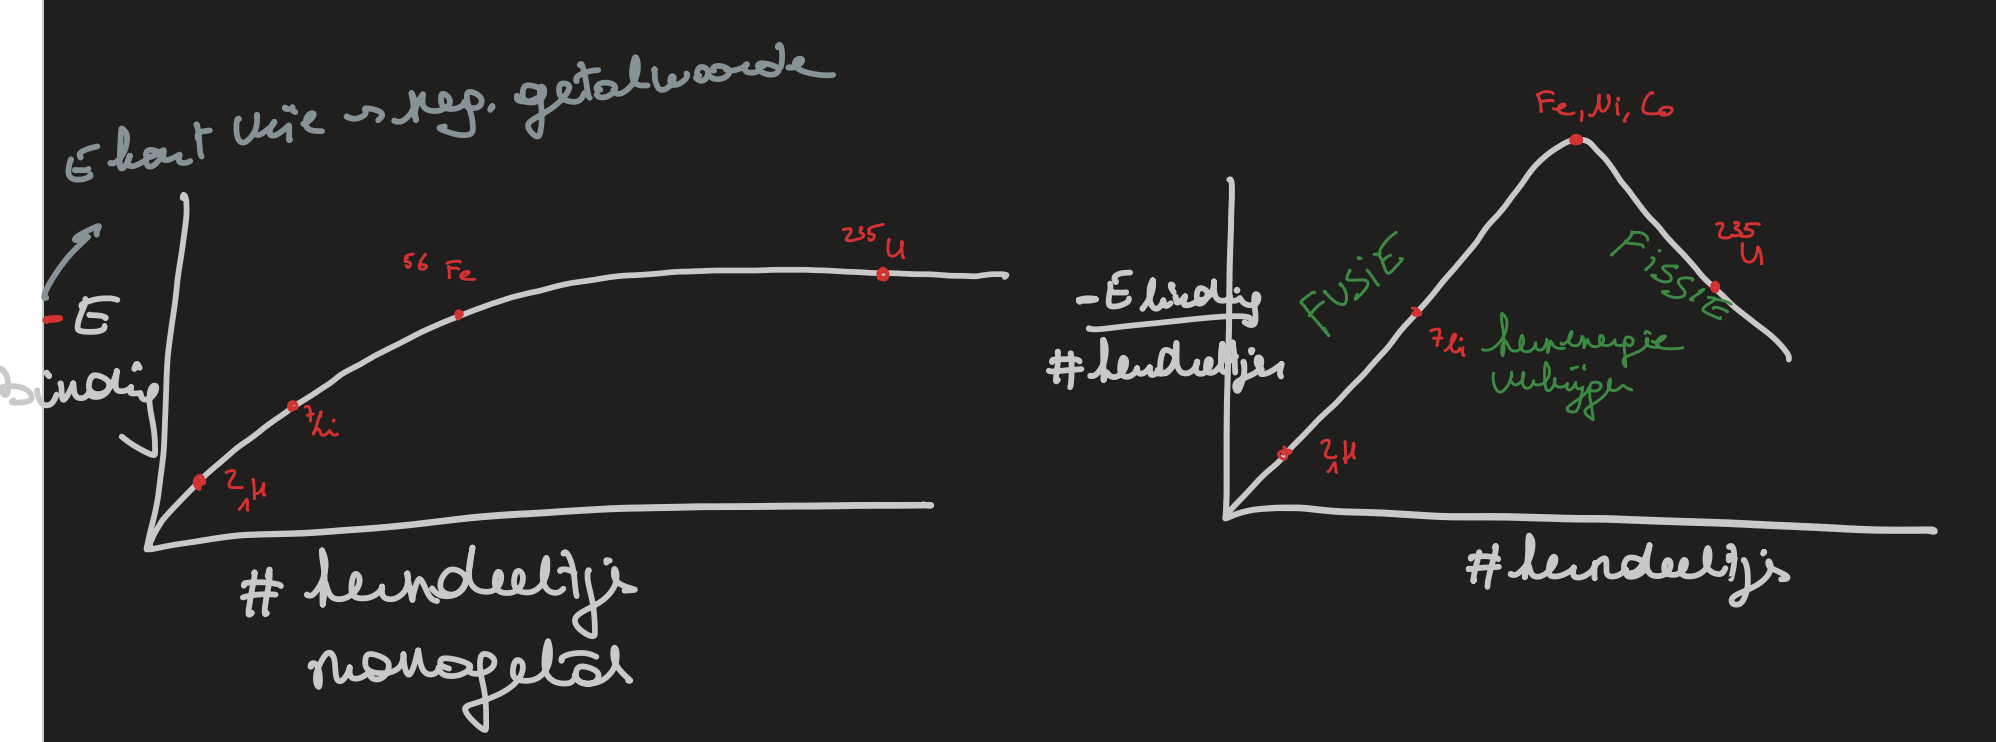 E komt vrije → neg. getalwaarde
- E
binding
56 Fe
235 U
7 Li
2 1 H
# kerndeeltjs
massagetal
Fe, Ni, Co
- E binding
# kerndeeltjes
FUSIE
FiSSIE
235 U
7 Li
kernenergie
verkrijgen
2 1 H
# kerndeeltjs